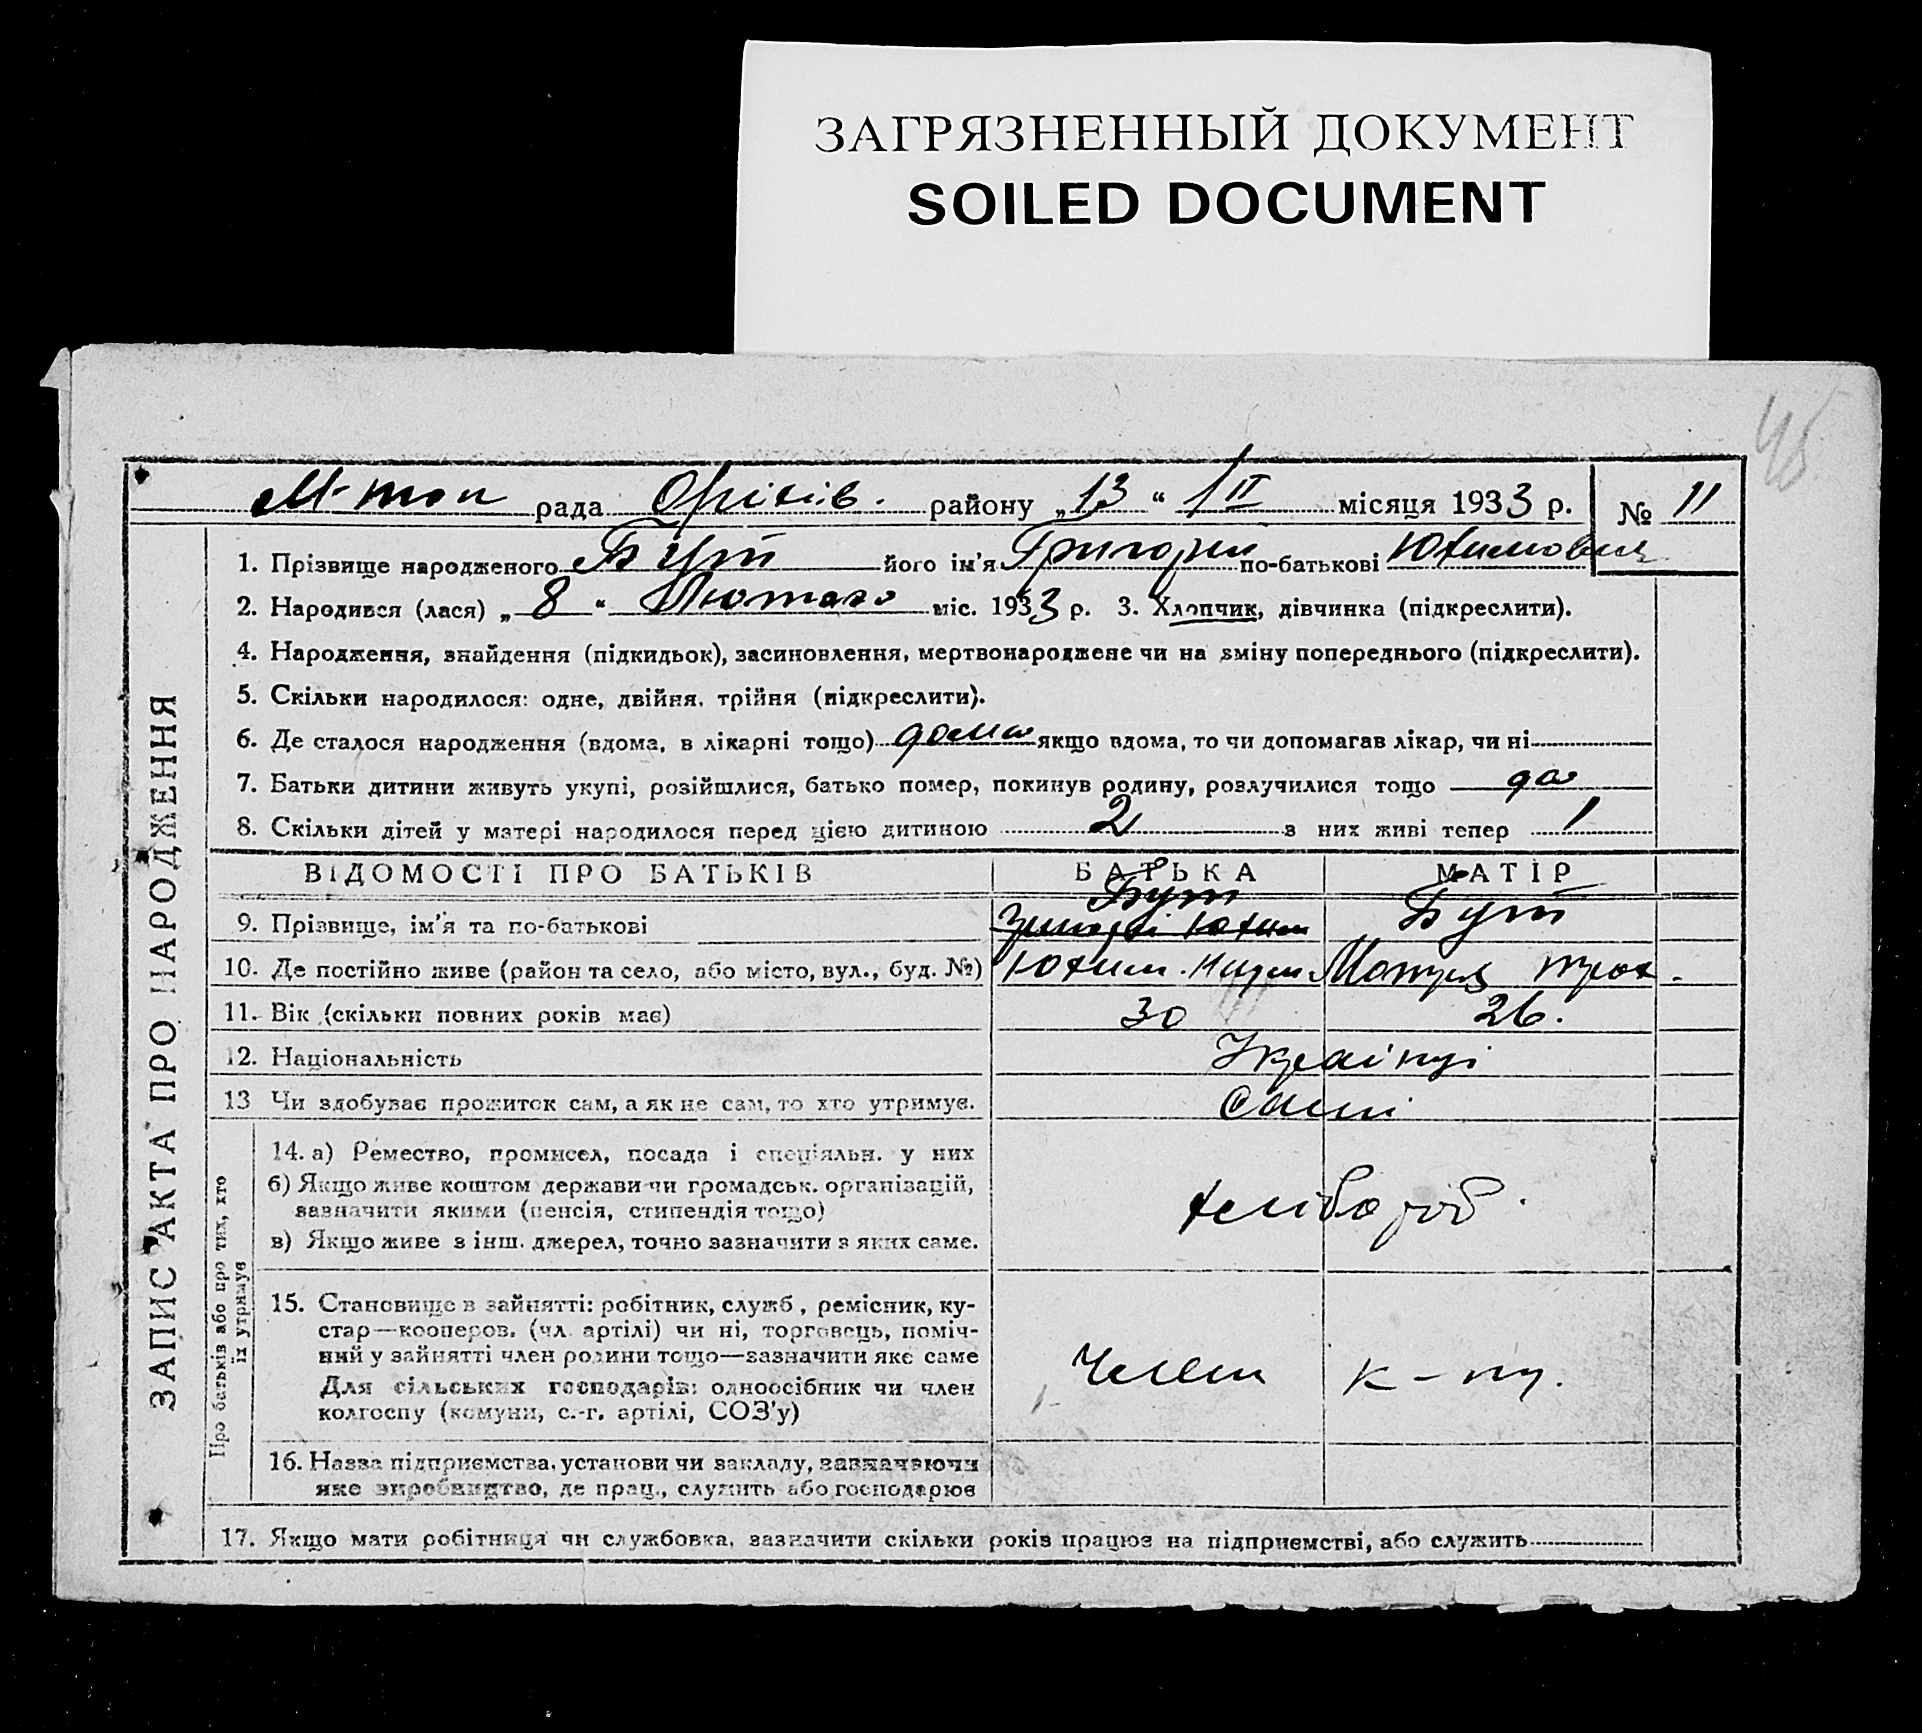 ЗАГРЯЗНЕННЫЙ ДОКУМЕНТ
SOILED DOCUMENT
45
М-топ рада Оріхів. району „13“ ІІ місяця 1933 р. № 11
ЗАПИС АКТА ПРО НАРОДЖЕННЯ
1. Прізвище народженого Бут його ім'я Григорій по-батькові Юхимович
2. Народився (лася) „8“ Лютого міс. 1933 р. 3. Хлопчик, дівчинка (підкреслити).
4. Народження, знайдення (підкидьок), засиновлення, мертвонароджене чи на зміну попереднього (підкреслити).
5. Скільки народилося: одне, двійня, трійня (підкреслити).
6. Де сталося народження (вдома, в лікарні тощо) дома якщо вдома, то чи допомагав лікар, чи ні
7. Батьки дитини живуть укупі, розійшлися, батько помер, покинув родину, розлучилися тощо да
8. Скільки дітей у матері народилося перед цією дитиною 2 з них живі тепер 1
ВІДОМОСТІ ПРО БАТЬКІВ БАТЬКА МАТІР
9. Прізвище, ім'я та по-батькові Бут Юхим Бут
10. Де постійно живе (район та село, або місто, вул., буд. №) Юхим. Мотря Трох.
11. Вік (скільки повних років має) 30 26.
12. Національність Українці
13 Чи здобуває прожиток сам, а як не сам, то хто утримує. Самі
Про батьків або про тих, хто їх утримує
14. а) Ремество, промисел, посада і спеціяльн. у них
б) Якщо живе коштом держави чи громадськ. організацій,
зазначити якими (пенсія, стипендія тощо)
хлібороб.
в) Якщо живе з інш. джерел, точно зазначити з яких саме.
15. Становище в зайнятті: робітник, служб, ремісник, ку-
стар—кооперов. (чл. артілі) чи ні, торговець, поміч-
ний у зайнятті член родини тощо—зазначити яке саме
Член к-пу.
Для сільських господарів: одноосібник чи член
колгоспу (комуни, с.-г. артілі, СОЗ'у)
16. Назва підприємства, установи чи закладу, зазначаючи
яке виробництво, де прац., служить або господарює
17. Якщо мати робітниця чи службовка, зазначити скільки років працює на підприємстві, або служить